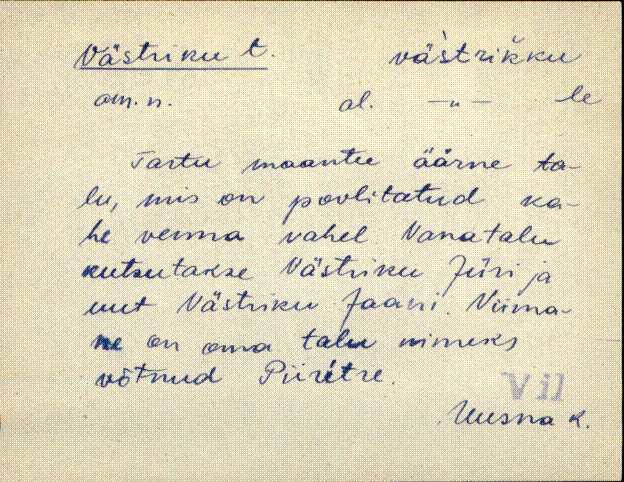 Västriku t. västrikku
om. n. al. —„— le
Tartu maantee äärne ta-
lu, mis on poolitatud ka-
he venna vahel. Vanatalu
kutsutakse Västriku Jüri ja
uut Västriku Jaani. Viima-
ne on oma talu nimeks
võtnud Piiritse.
Vil
Uusna k.